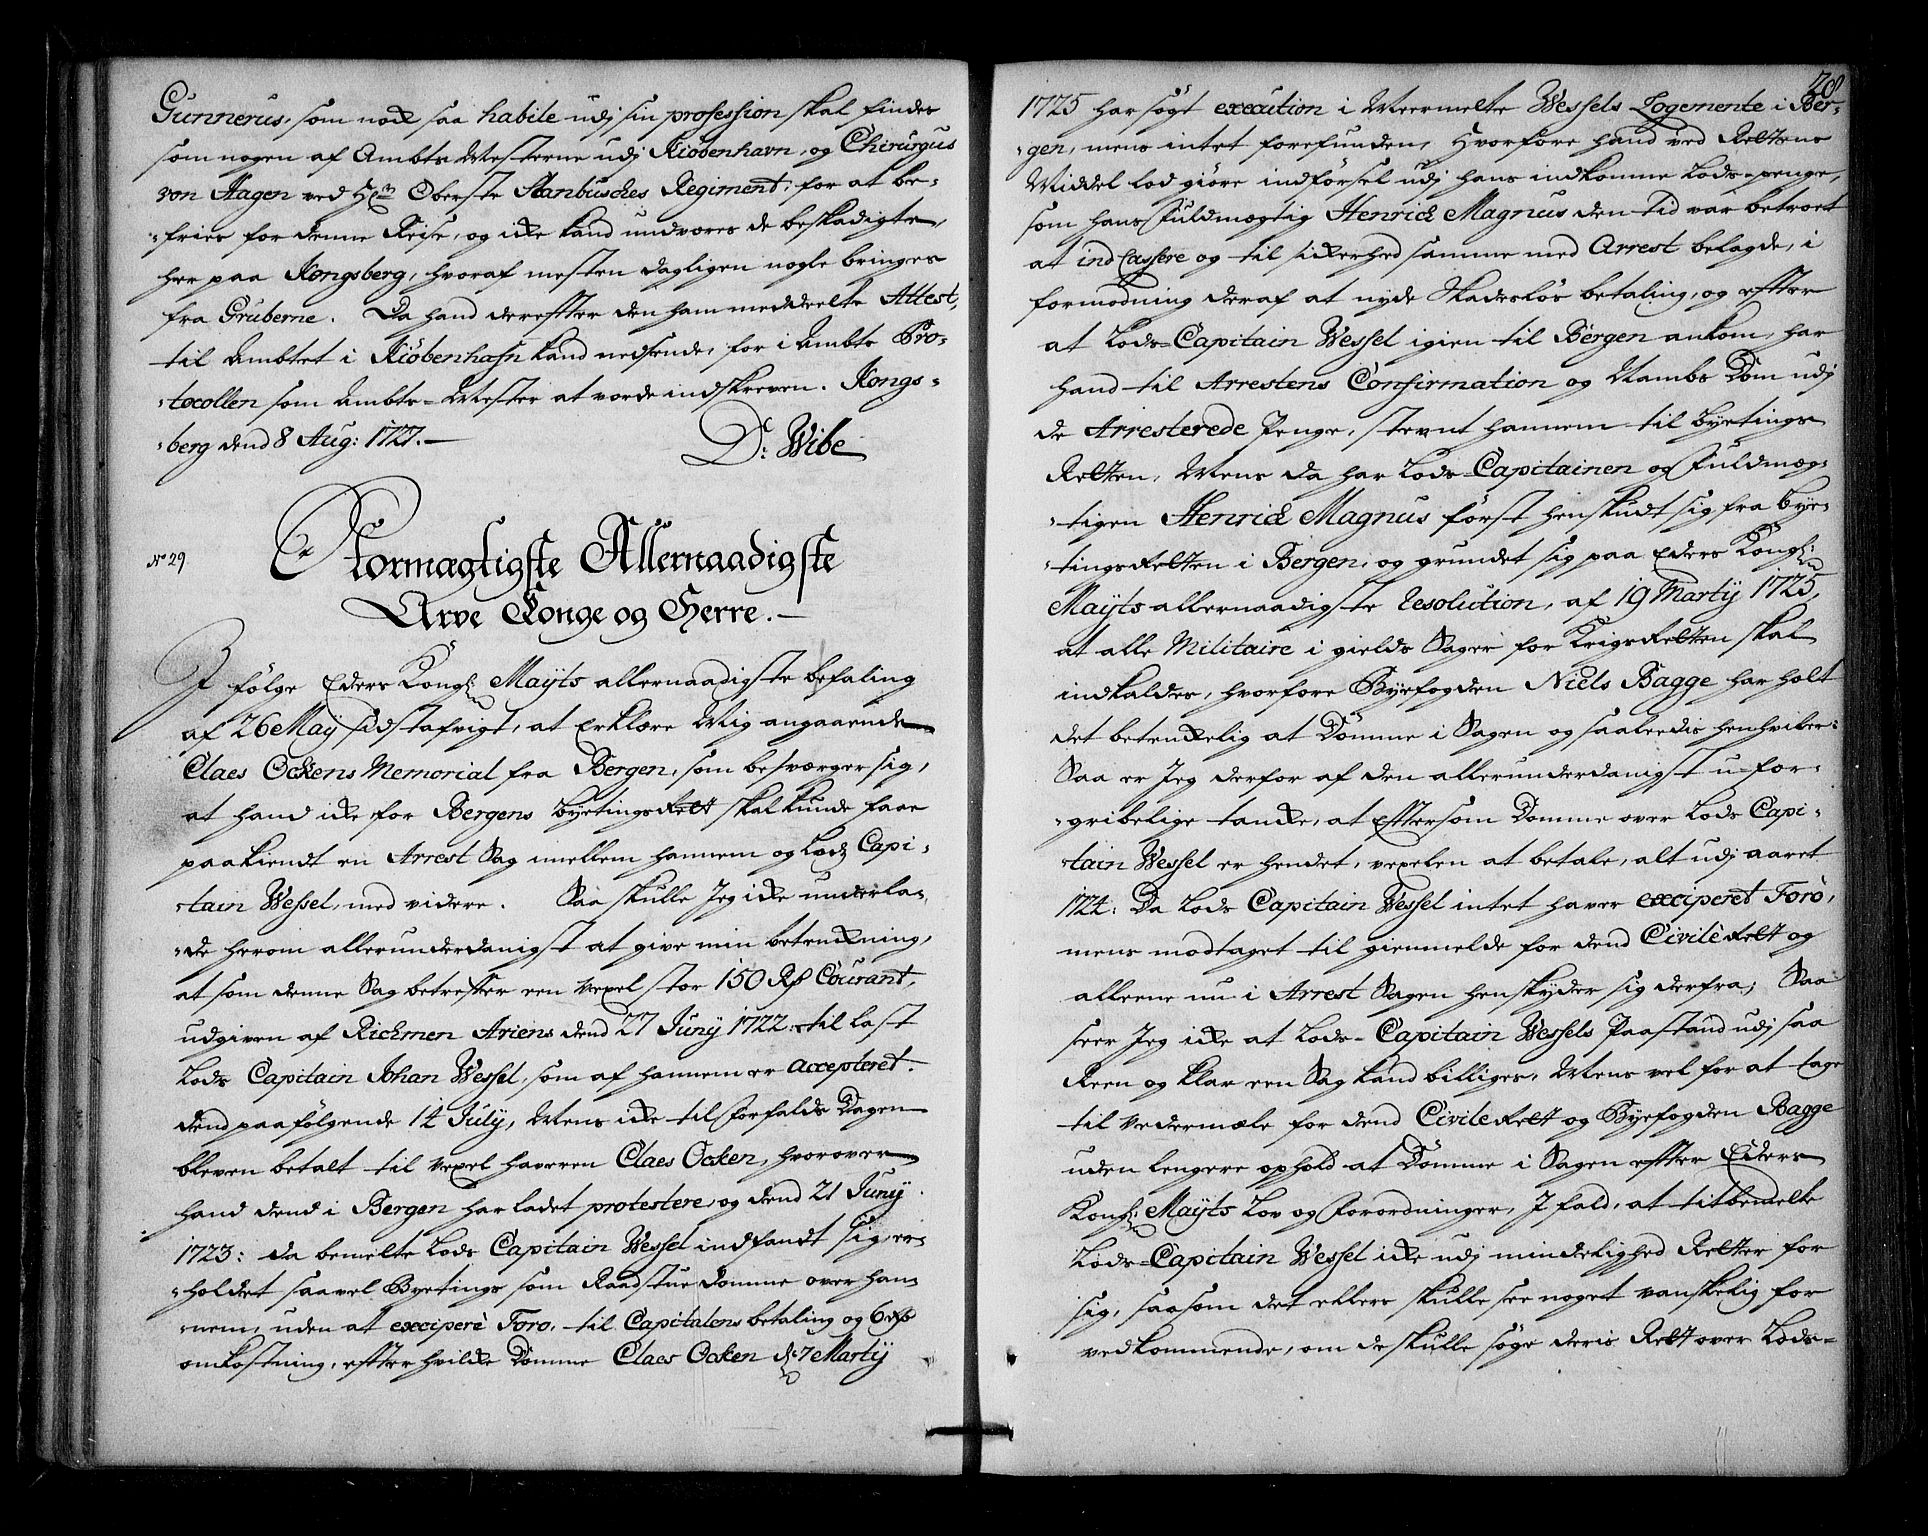 Gunnerus, som nok saa habile udj sin profession skal findes
som nogen af Ambts Mesterne udj Kiöbenhavn, og Chirurgus
von Hagen ved Hr Oberste Stanbusches Regiment, for at be-
-fries for denne Reise, og ikke kand undværes de beskadigte
her paa Kongsberg, hvoraf mesten dagligen nogle bringes
fra Gruberne. Da hand derefter den ham meddeelte Attest,
til Ambtet i Kiöbenhafn kand nedsende, for i Ambts Pro-
-tocollen som Ambts-Mester at vorde indskreven. Kongs-
-berg dend 8 Aug: 1727.
D: Wibe
No 29
Stormægtigste Allernaadigste
Arve Konge og Herre.
I fölge Eders Kongl: Mayts allernaadigste befaling
af 26 May sidstafvigt, at erklære Mig angaaende
Claes Ockens Memorial fra Bergen, som besværger sig,
at hand ikke for Bergens byetings Rett skal kunde faae
paakiendt en Arrest Sag imellem hannem og Lods Capi-
-tain Wessel, med videre. Saa skulle Jeg ikke underla-
-de herom allerunderdanigst at give min betenkning,
at som denne Sag betreffer een vexel stor 150 Rd Courant,
udgiven af Rickmen Ariens dend 27 Junij 1722. til last
Lods Capitain Johan Wessel, som af hannem er accepteret.
dend paafölgende 14 July, Mens ikke til forfalds Dagen
bleven betalt til vexel haveren Claes Ocken, hvorover
hand dend i Bergen har ladet protestere, og dend 21 Junij
1723: da bemelte Lods Capitain Wessel indfandt sig, er-
-holdet saavel Byetings som Raadstue Domme over han-
-nem, uden at excipere Foro, til Capitalens betaling og 6 rd
omkostning, efter hvilke Domme Claes Ocken d: 7 Martij
28
1725 har sögt execution i Meermelte Wessels Logemente i Ber-
-gen, mens intet forefunden, Hvorfore hand ved Rettens
Middel lod giöre indförsel udj hans indkomne Lods-penge,
som hans Fuldmægtig Henrick Magnus den tid var betroet
at ind Cassere og til sikerhed samme med Arrest belagde, i
formodning deraf at nyde Skadeslös betaling, og efter
at Lods-Capitain Wessel igien til Bergen ankom, har
hand til Arrestens Confirmation og Nambs Dom udj
de Arresterede Penge, stevnt hannem til byetings
Retten, Mens da har Lods-Capitainen og Fuldmæg-
-tigen Henrick Magnus först henskudt sig fra bye-
-tings Retten i Bergen, og grundet sig paa Eders Kongl:
Mayts allernaadigste Resolution, af 19 Martij 1725,
at alle Militaire i gields Sager for Krigs Retten skal
indkaldes, hvorfore Byefogden Niels Bagge har holt
det betenkelig at Dömme i Sagen og saaleedis henhviler:
Saa er Jeg derfor af den allerunderdanigst u-for-
-gribelige tanke, at eftersom Domme over Lods Capi-
-tain Wessel er hendet, vexelen at betale, alt udj aaret
1724: Da Lods Capitain Wessel intet haver exciperet Foro,
mens modtaget til giemmelde for dend Civile Rett og
alleene nu i Arrest Sagen henskyder sig derfra; Saa
seer Jeg ikke at Lods-Capitain Wessels Paastand udj saa
Reen og klar een Sag kand billiges, Mens vel for at tage
til vedermæle for dend Civile Rett og Byefogden Bagge
uden lengere ophold at Dömme i Sagen efter Eders
Kongl: Mayts Lov og Forordninger, I fald, at titbemelte
Lods-Capitain Wessel ikke udj mindelighed Retter for
sig, saasom det ellers skulle see noget vanskelig for
vedkommende, om de skulle söge deris Rett over Lods-